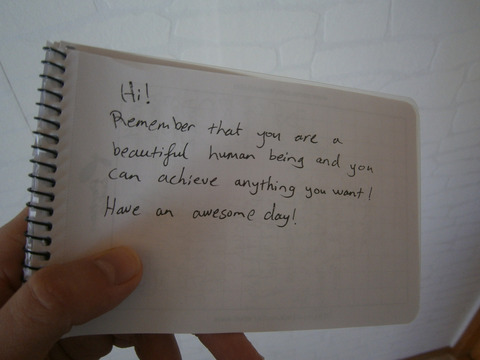 Hi!
Remember that you are a
beautiful human being and you
can achieve anything you want!
Have an awesome day!